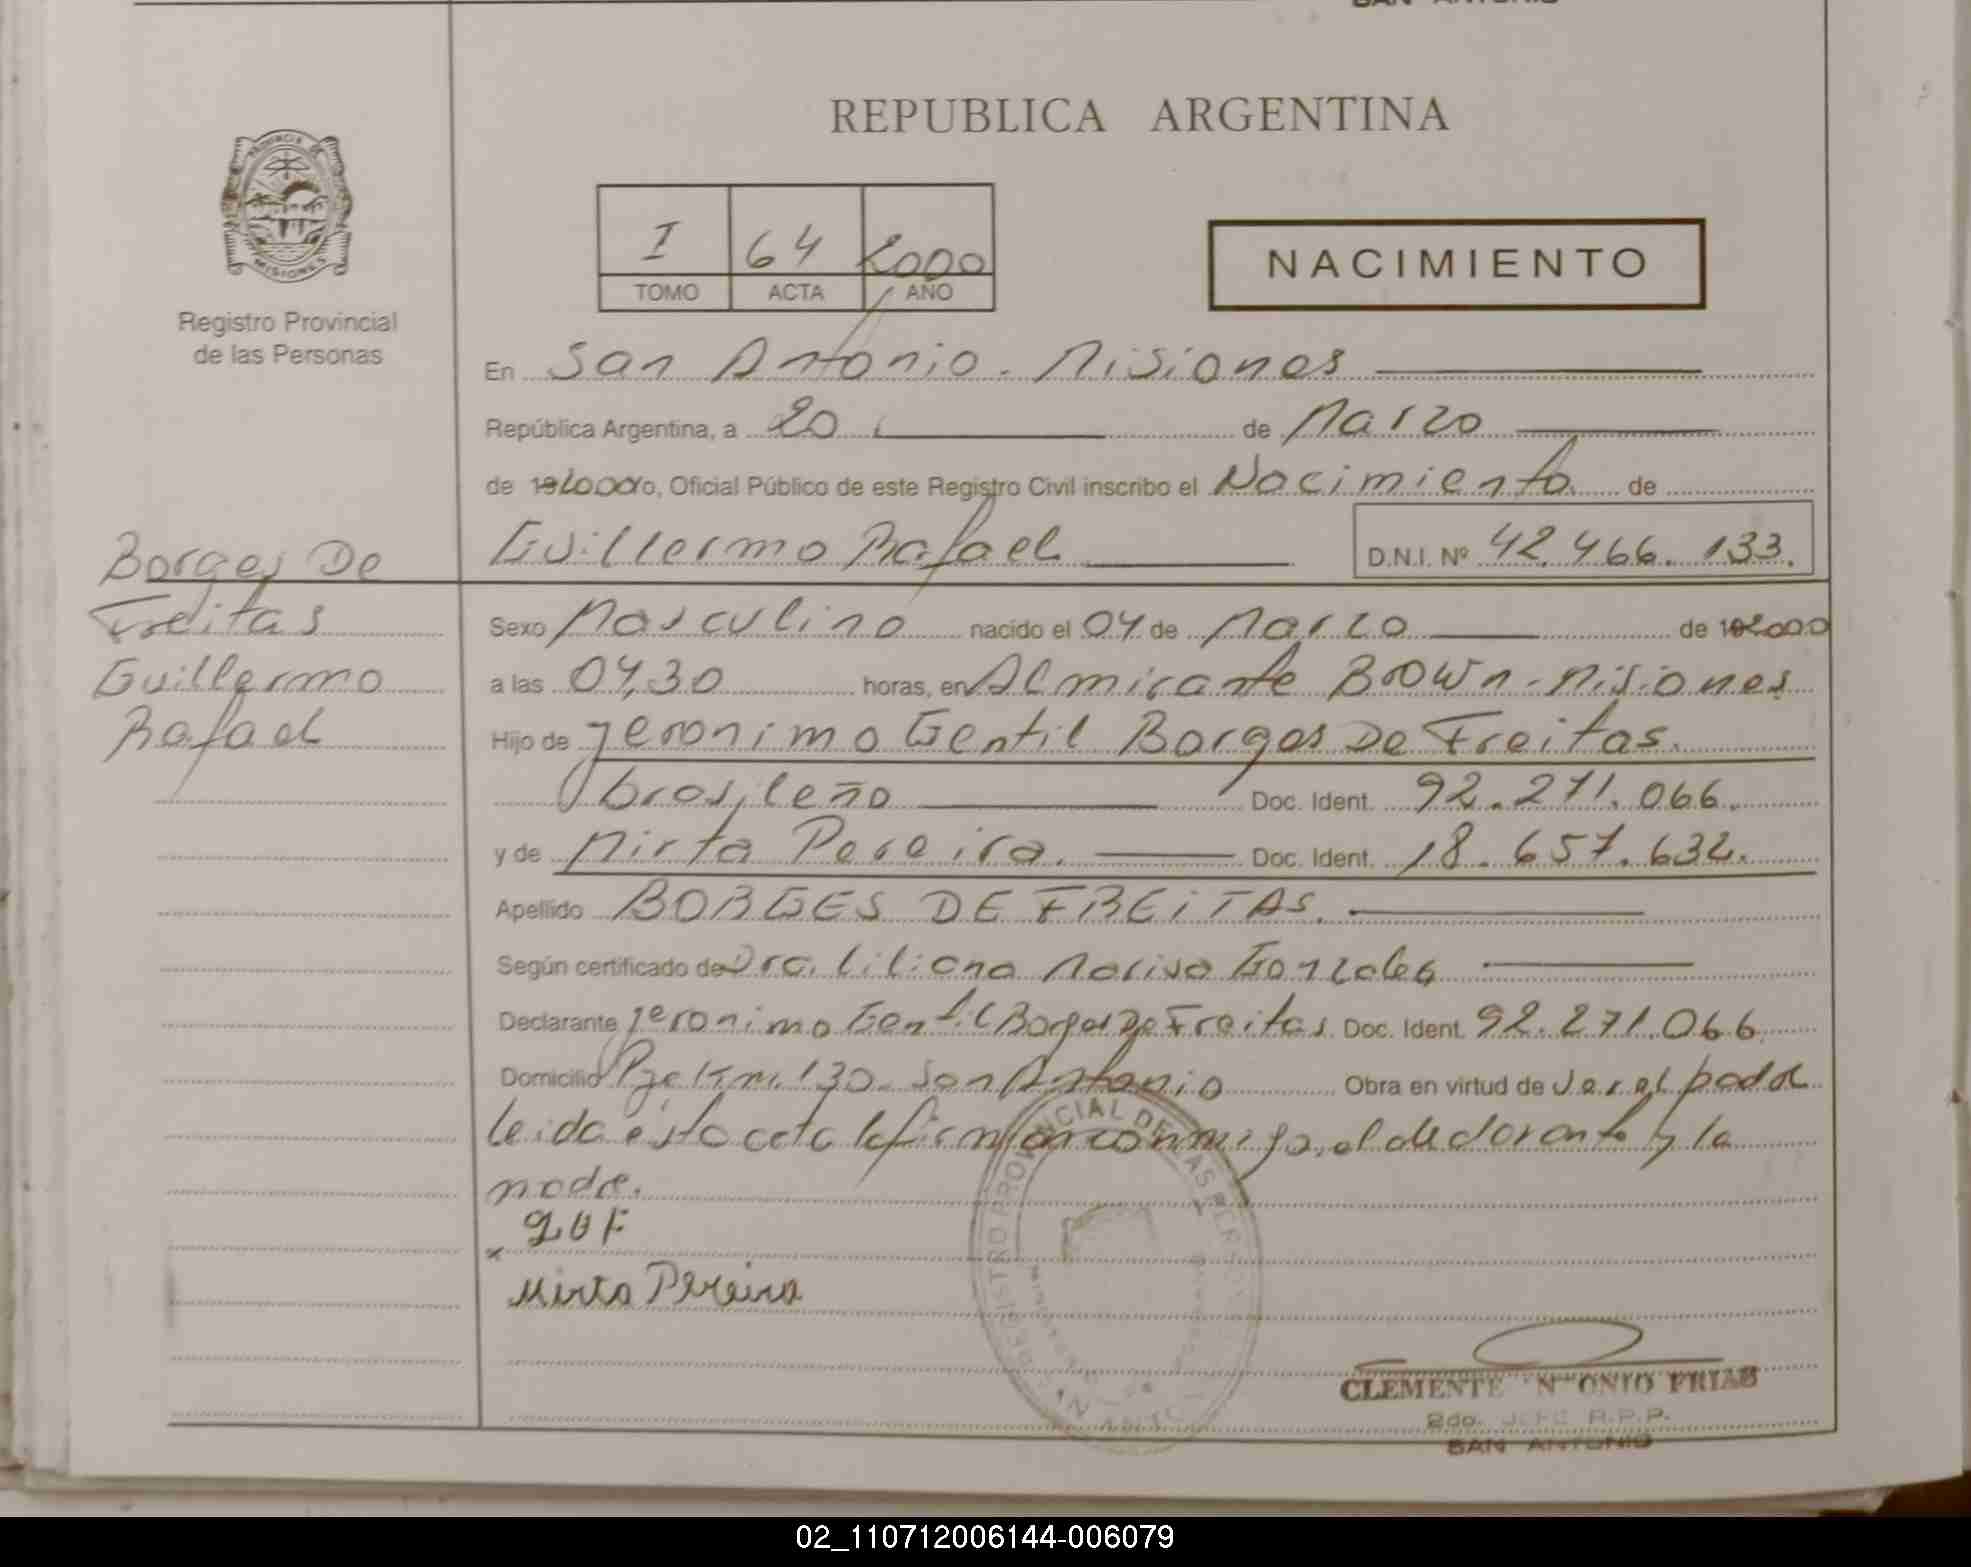 REPUBLICA ARGENTINA
PROVINCIA DE
MISIONES
Registro Provincial
de las Personas
I 64 2000
TOMO ACTA AÑO
NACIMIENTO
En San Antonio - Misiones
República Argentina, a 20 de Marzo
de 192000 Yo, Oficial Público de este Registro Civil inscribo el Nacimiento de
Guillermo Rafael D.N.I. Nº 42.466.133.
Borges De
Freitas
Guillermo
Rafael
Sexo Masculino nacido el 04 de Marzo de 192000
a las 04,30 horas, en Almirante Brown - Misiones
Hijo de Jeronimo Gentil Borges De Freitas.
brasileño Doc. Ident. 92.271.066.
y de Mirta Pereira. Doc. Ident. 18.657.632.
Apellido BORGES DE FREITAS.
Según certificado de Dra. Liliana Marisa Gonzales
Declarante Jeronimo Gentil Borges De Freitas Doc. Ident. 92.271.066
Domicilio Pje Km. 130 - San Antonio Obra en virtud de ser el padre
leida ésta acta la firman conmigo, el declarante y la
madre.
x
Mirta Pereira
REGISTRO PROVINCIAL DE LAS PERSONAS
SAN ANTONIO
CLEMENTE ANTONIO FRIAS
2do. JEFE R.P.P.
SAN ANTONIO
02_110712006144-006079